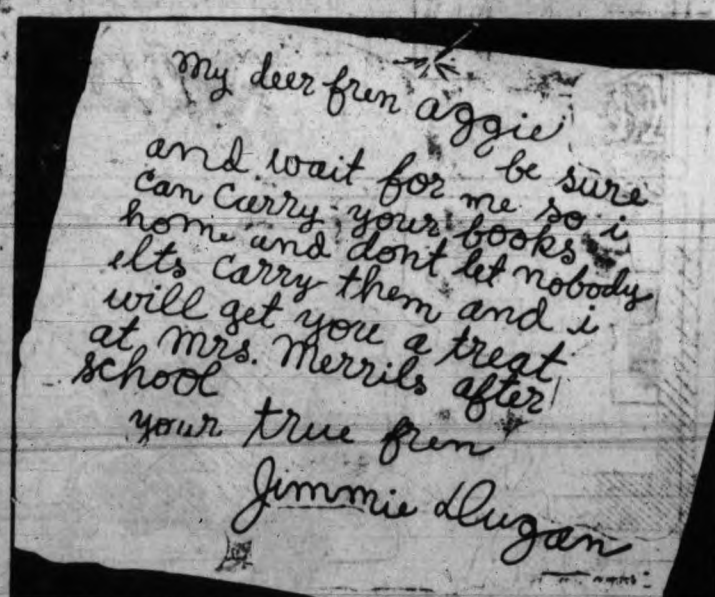 My deer fren Aggie
be sure
and wait for me so i
can carry your books
home and dont let nobody
elts carry them and i
will get you a treat
at Mrs. Merrils after
school
your true fren
Jimmie Dugan